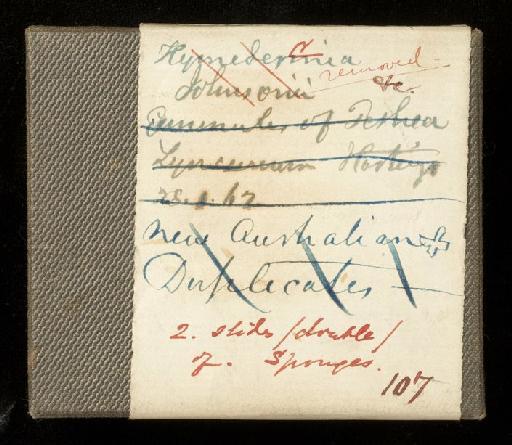 Hymedesmia
Johnsonii removed &c.
Gemmules of Tethea
Lyncurium Hastings
28.1.62
New Australian &
Duplicates
2. slides (double)
of. Sponges.
107